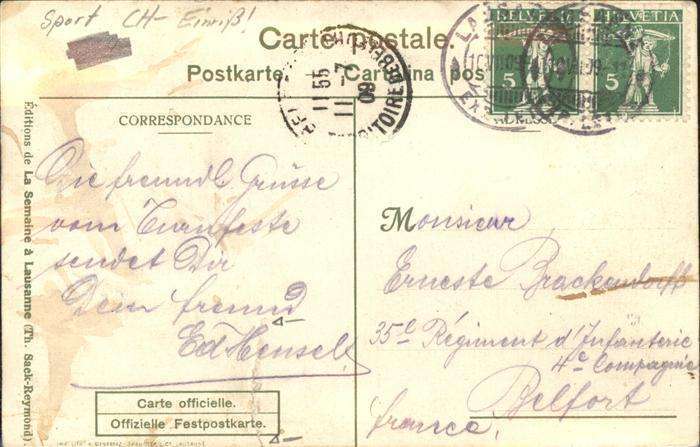 Sport CH- Einriß!
Carte postale.
Postkarte. Cartolina pos
HELVETIA HELVETIA
5 5
11 55
11 -7
09
BELF TERRITOIRE DE
CORRESPONDANCE
Die freundl Grüsse
vom Turnfeste
sendet Dir
Dein freund
Ed Hensel
Monsieur
Erneste Brackendorff
35e Régiment d'Infanterie
4e Compagnie
Belfort
france.
Carte officielle.
Offizielle Festpostkarte.
Éditions de La Semaine à Lausanne (Th. Sack-Reymond)